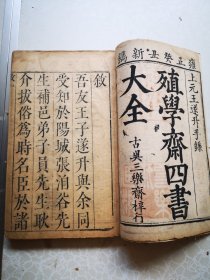 雍正癸丑新鐫
上元王遂升手錄
殖學齋四書
大全
古吳三樂齋梓行
敘
吾友王子遂升與余同
受知於陽城張洎谷先
生補邑弟子員先生耿
介拔俗為時名臣於諸